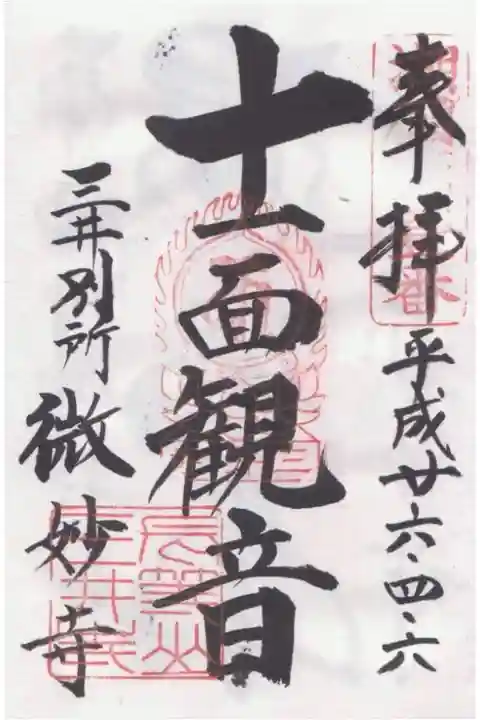 奉拝 平成廿六.四.六
十一面観音
三井別所 微妙寺